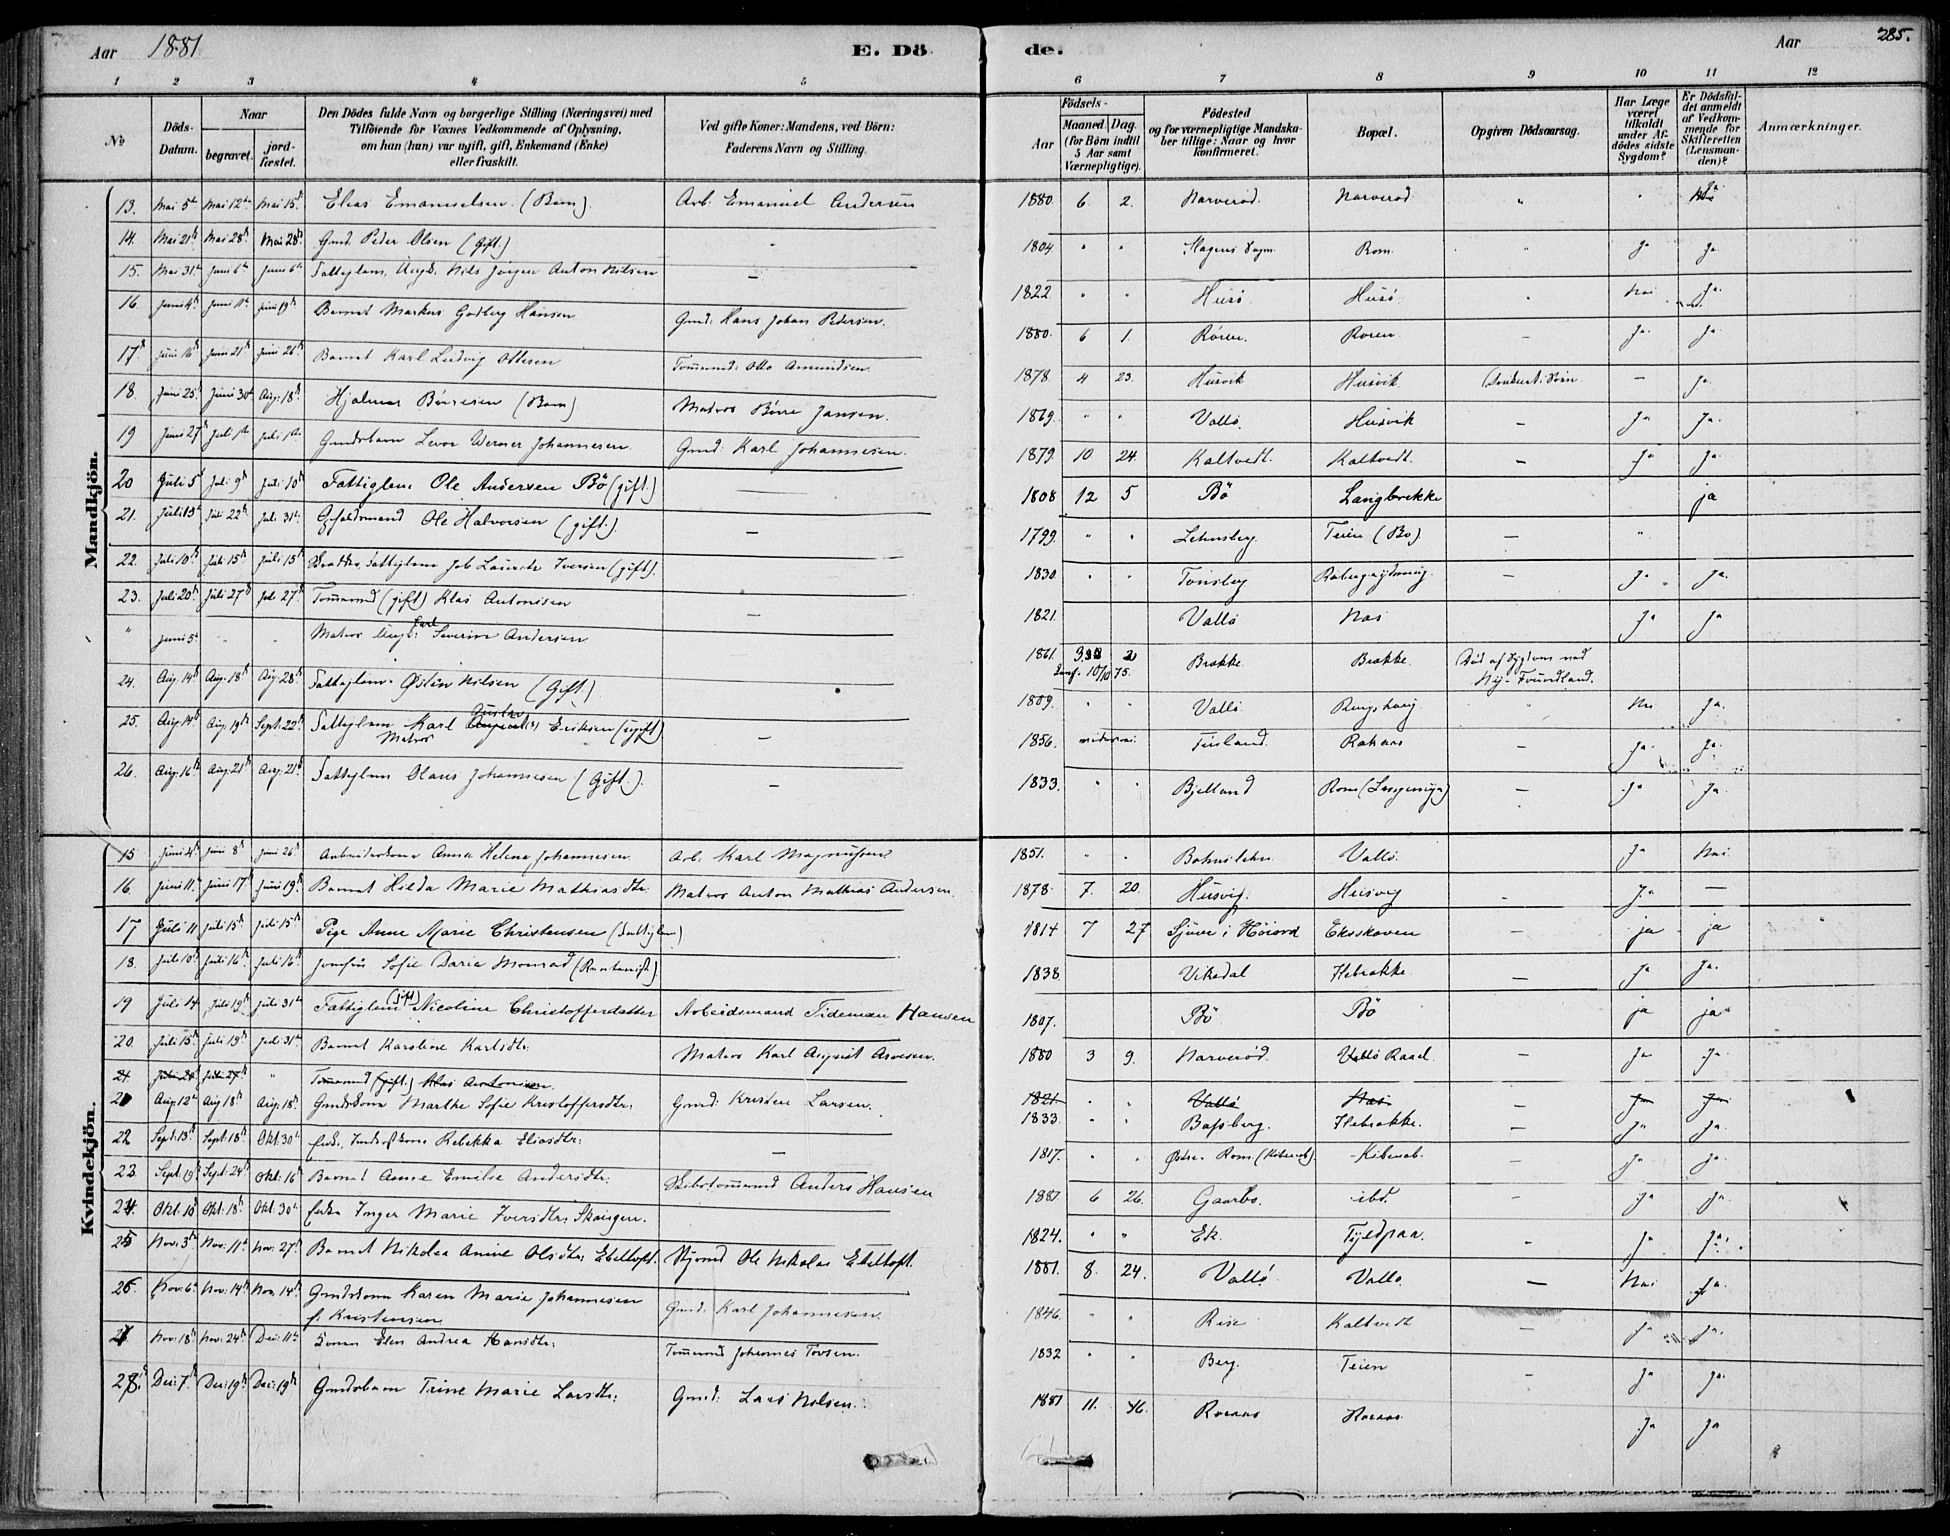 Aar 1881.
E. Dö
de.
Aar
285.
1 2 3 4 5 6 7 8 9 10 11 12
No
Döds-Datum.
Naar
begravet.
jord-fæstet.
Den Dödes fulde Navn og borgerlige Stilling (Næringsvei) med
Tilföiende for Voxnes Vedkommende af Oplysning,
om han (hun) var ugift, gift, Enkemand (Enke)
eller fraskilt.
Ved gifte Koner: Mandens, ved Börn:
Faderens Navn og Stilling.
Födsels-
Aar
Maaned. Dag.
(for Börn indtil
5 Aar samt
Værnepligtige).
Födested
og for værnepligtige Mandska-
ber tillige: Naar og hvor
konfirmeret.
Bopæl.
Opgiven Dödsaarsag.
Har Læge
været
tilkaldt
under Af-
dödes sidste
Sygdom?
Er Dödsfal-
det anmeldt
af Vedkom-
mende for
Skifteretten
(Lensman-
den)?
Anmærkninger.
Mandkjön.
13. Mai 5 Mai 12 Mai 15 Elias Emanuelsen (Barn) Arb. Emanuel Andersen 1880 6. 2. Narverød Narverød
14. Mai 21 Mai 28 Mai 28 Gmd. Peder Olsen (gift.) 1804 Slagens Sogn Rom. Ja Ja
15. Mai 31 Juni 6 Juni 6 Fattiglem, Ungk. Nils Jørgen Anton Nilsen — 1822 Husø Husø Nei Ja
16. Juni 4 Juni 11 Juni 19 Barnet Markus Godberg Hansen Gmd: Hans Johan Pedersen. 1880 6 1. Røren Røren — Ja Ja
17. Juni 16 Juni 21 Juni 26 Barnet Karl Ludvig Ottesen Tømmermd: Otto Amundsen 1878. 4 23. Husvik Husvik Ja
18. Juni 25 Juni 30 Aug: 18 Hjalmar Børresen (Barn) Matros Børre Jansen. 1869. Vallø Husvik — Ja Ja
19 Juni 27 Juli 1 Juli 1 Gmdsbarn Werner Johannesen Gmd: Karl Johannesen. 1879. 10 24. Kaltvedt. Kaltvedt. — Ja Ja
20 Juli 5 Juli 9 Juli 10 Fattiglem Ole Andersen Bö (gift) 1808 12 5 Bö Langbrekke ja
21. Juli 13 Juli 22 Juli 31 Ole Halvorsen (gift.) — 1799. Lehnsberg Teien (Bö) —
22. Juli 10 Juli 15 Juli 15 Fattiglem Laurits Iversen (gift). 1830 Tønsberg — Ja Ja
23. Juli 20 Juli 27 Juli 27 Tømmermd (gift) Klas Antonisen — 1821. Vallø Næs Ja Ja
" Juni 5 Matros Ungk: Karl Severin Andersen 1861. Brække Brække. Død af Sygdom ved
Konf. 10/10 75. Ny-Foundland.
24. Aug. 14 Aug. 18 Aug. 28 Fattiglem Østen Nilsen (Gift.) 1809. Vallø Ringshaug Nei Ja
25. Aug 14 Aug. 19 Sept. 22 Fattiglem Karl Gustav August Eriksen (ugift) — 1856. Finland Ja Ja
Matros
26. Aug. 16 Aug. 21 Aug. 21 Fattiglem Olaus Johannesen (Gift). — 1833. Bjelland Rom — Ja Ja
Kvindekjön.
15 Juni 4 Juni 8 Juni 26 Arbeiderkone Anna Helene Johannesen Arb. Karl Magnussen 1851. Bohuslehn Vallø. Ja Nei
16. Juni 11 Juni 17 Juni 19 Barnet Hilda Marie Mathiasdtr: Matros Anton Mathias Andersen. 1878 7. 20. Husvig. Husvig Ja —
17 Juli 11 Juli 15 Juli 15 Pige Anne Marie Christensen (Fattiglem) 1814 7 27 Sjuve i Höiord Eksskoven ja ja
18. Juli 10 Juli 16 Juli 16 Jomfru Sofie Daria Monrad 1838 Vikedal Ilebrække. Ja Ja.
19 Juli 14 Juli 19 Juli 31 Fattiglem (gift) Nicoline Christoffersdatter Arbeidsmand Tideman Hansen 1807. Bö Bö ja ja
20. Juli 15 Juli 19 Juli 31 Barnet Karoline Karlsdtr: Matros Karl August Arvesen. 1880 3 9. Narverød. Vallø Raael. — Ja Ja
21 Juli 20 Juli 27 " Tømmermd (gift.) Klas Antonisen. 1821. Vallø Næs Ja Ja
21 Aug. 12 Aug 18 Aug. 18 Gmdskone Marthe Sofie Kristoffersdtr: Gmd: Kristen Larsen. 1833 Basberg. Ilebrække. — Ja Ja.
22 Sept: 13 Sept. 18 Okt. 30 Enke, Rebekka Eliasdtr: — 1817. Østre Rom — Ja Ja.
23. Sept. 19 Sept. 24 Okt. 16 Barnet Anne Emilie Andersdtr. Skibstømmermd Anders Hansen 1881 6 26. Gaarbo ibd. — Ja Ja
24 Okt. 10 Okt. 18 Okt. 30 Enke Inger Marie Iversdtr: Skoingen. 1824. Ek. — Ja Ja.
25 Nov: 3 Nov: 11 Nov: 27 Barnet Nikolea Anine Olsdtr: Ebeltoft. Styrmd Ole Nikolas Ebeltoft. 1881. 8. 24. Vallø Vallø. — Nei Ja.
26 Nov: 6 Nov: 14 Nov 14 Gmdskone Karen Marie Johannesen Gmd: Karl Johannesen. 1846. Rise Kaltvedt — Ja Ja.
f. Kristensen
27 Nov: 18 Nov: 24 Dec: 11 Konen Elen Andrea Hansdtr: Tømmermd Johannes Tovsen. 1832 Berg. Teien — Ja Ja.
28. Dec: 7 Dec: 19 Dec: 19 Gmdsbarn Trine Marie Larsdtr: Gmd: Lars Nilsen. 1881 11. 16. Roraas Roraas Ja Ja